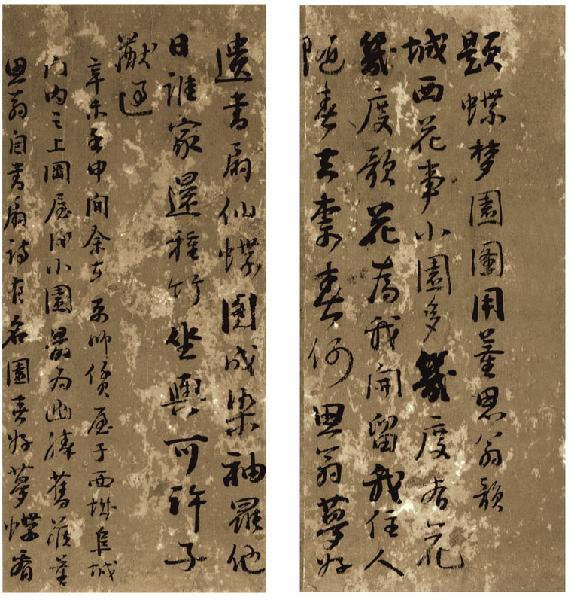 題蝶梦園圖用董思翁韻
城西花事小園多幾度看花
幾度歌花為我開留我住人
隨春去柰春何思翁夢好
遺書扇仙蝶圖成染袖羅他
日誰家還種竹坐輿可許子
猷過
辛未壬申間余在京師賃屋于西城阜城
門内之上岡屋後小園最為幽勝舊藏董
思翁自書扇詩有名園春好夢蝶看